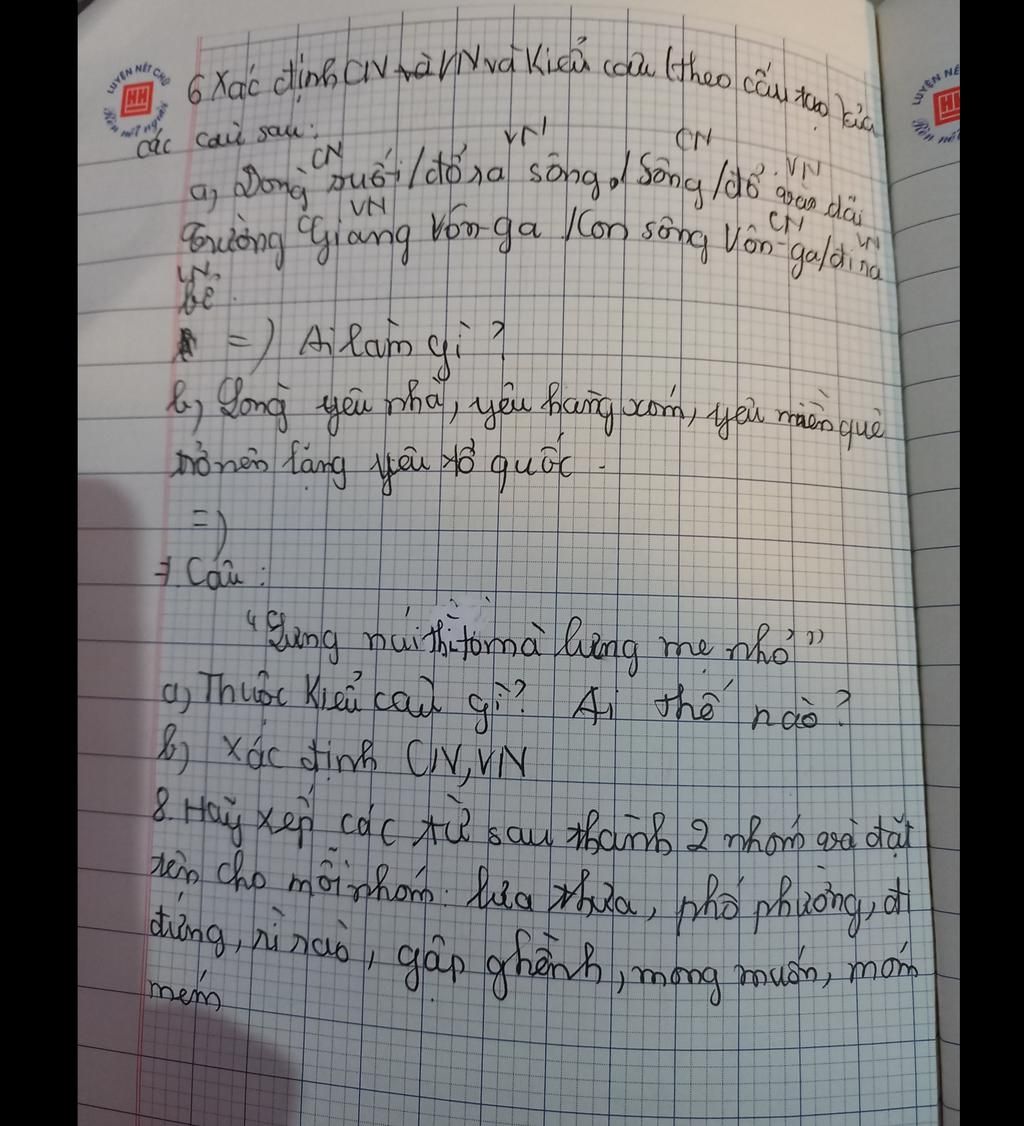 LUYỆN NÉT CHỮ
HH
Rèn nết người
LUYỆN NÉ
HH
Rèn nết
6 Xác định CN và VN và Kiểu câu (theo cấu tạo của
các câu sau:
CN VN CN VN
a, Dòng suối / đổ ra sông, / Sông / đổ vào dải
VN CN VN
Trường Giang Vôn-ga / Con sông Vôn-ga / đi ra
VN
bể.
=) Ai làm gì?
b, Lòng yêu nhà, yêu hàng xóm, yêu miền quê
trở nên lòng yêu tổ quốc.
=)
7. Câu:
"Lưng núi thì to mà lưng mẹ nhỏ"
a) Thuộc kiểu câu gì? Ai thế nào?
b) Xác định CN, VN
8. Hãy xếp các từ sau thành 2 nhóm và đặt
tên cho mỗi nhóm: lưa thưa, phố phường, đi
đứng, rì rào, gập ghềnh, mong muốn, móm
mém